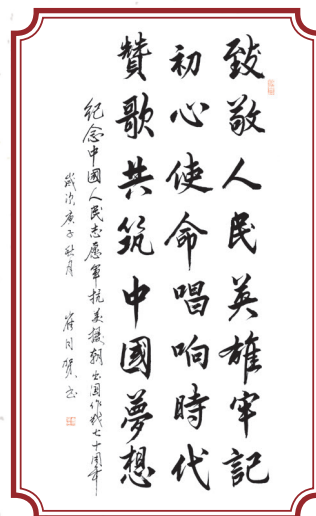 致敬人民英雄牢記
初心使命唱响時代
贊歌共筑中國夢想
紀念中國人民志愿軍抗美援朝出国作战七十周年
歲次庚子秋月
崔同賀書